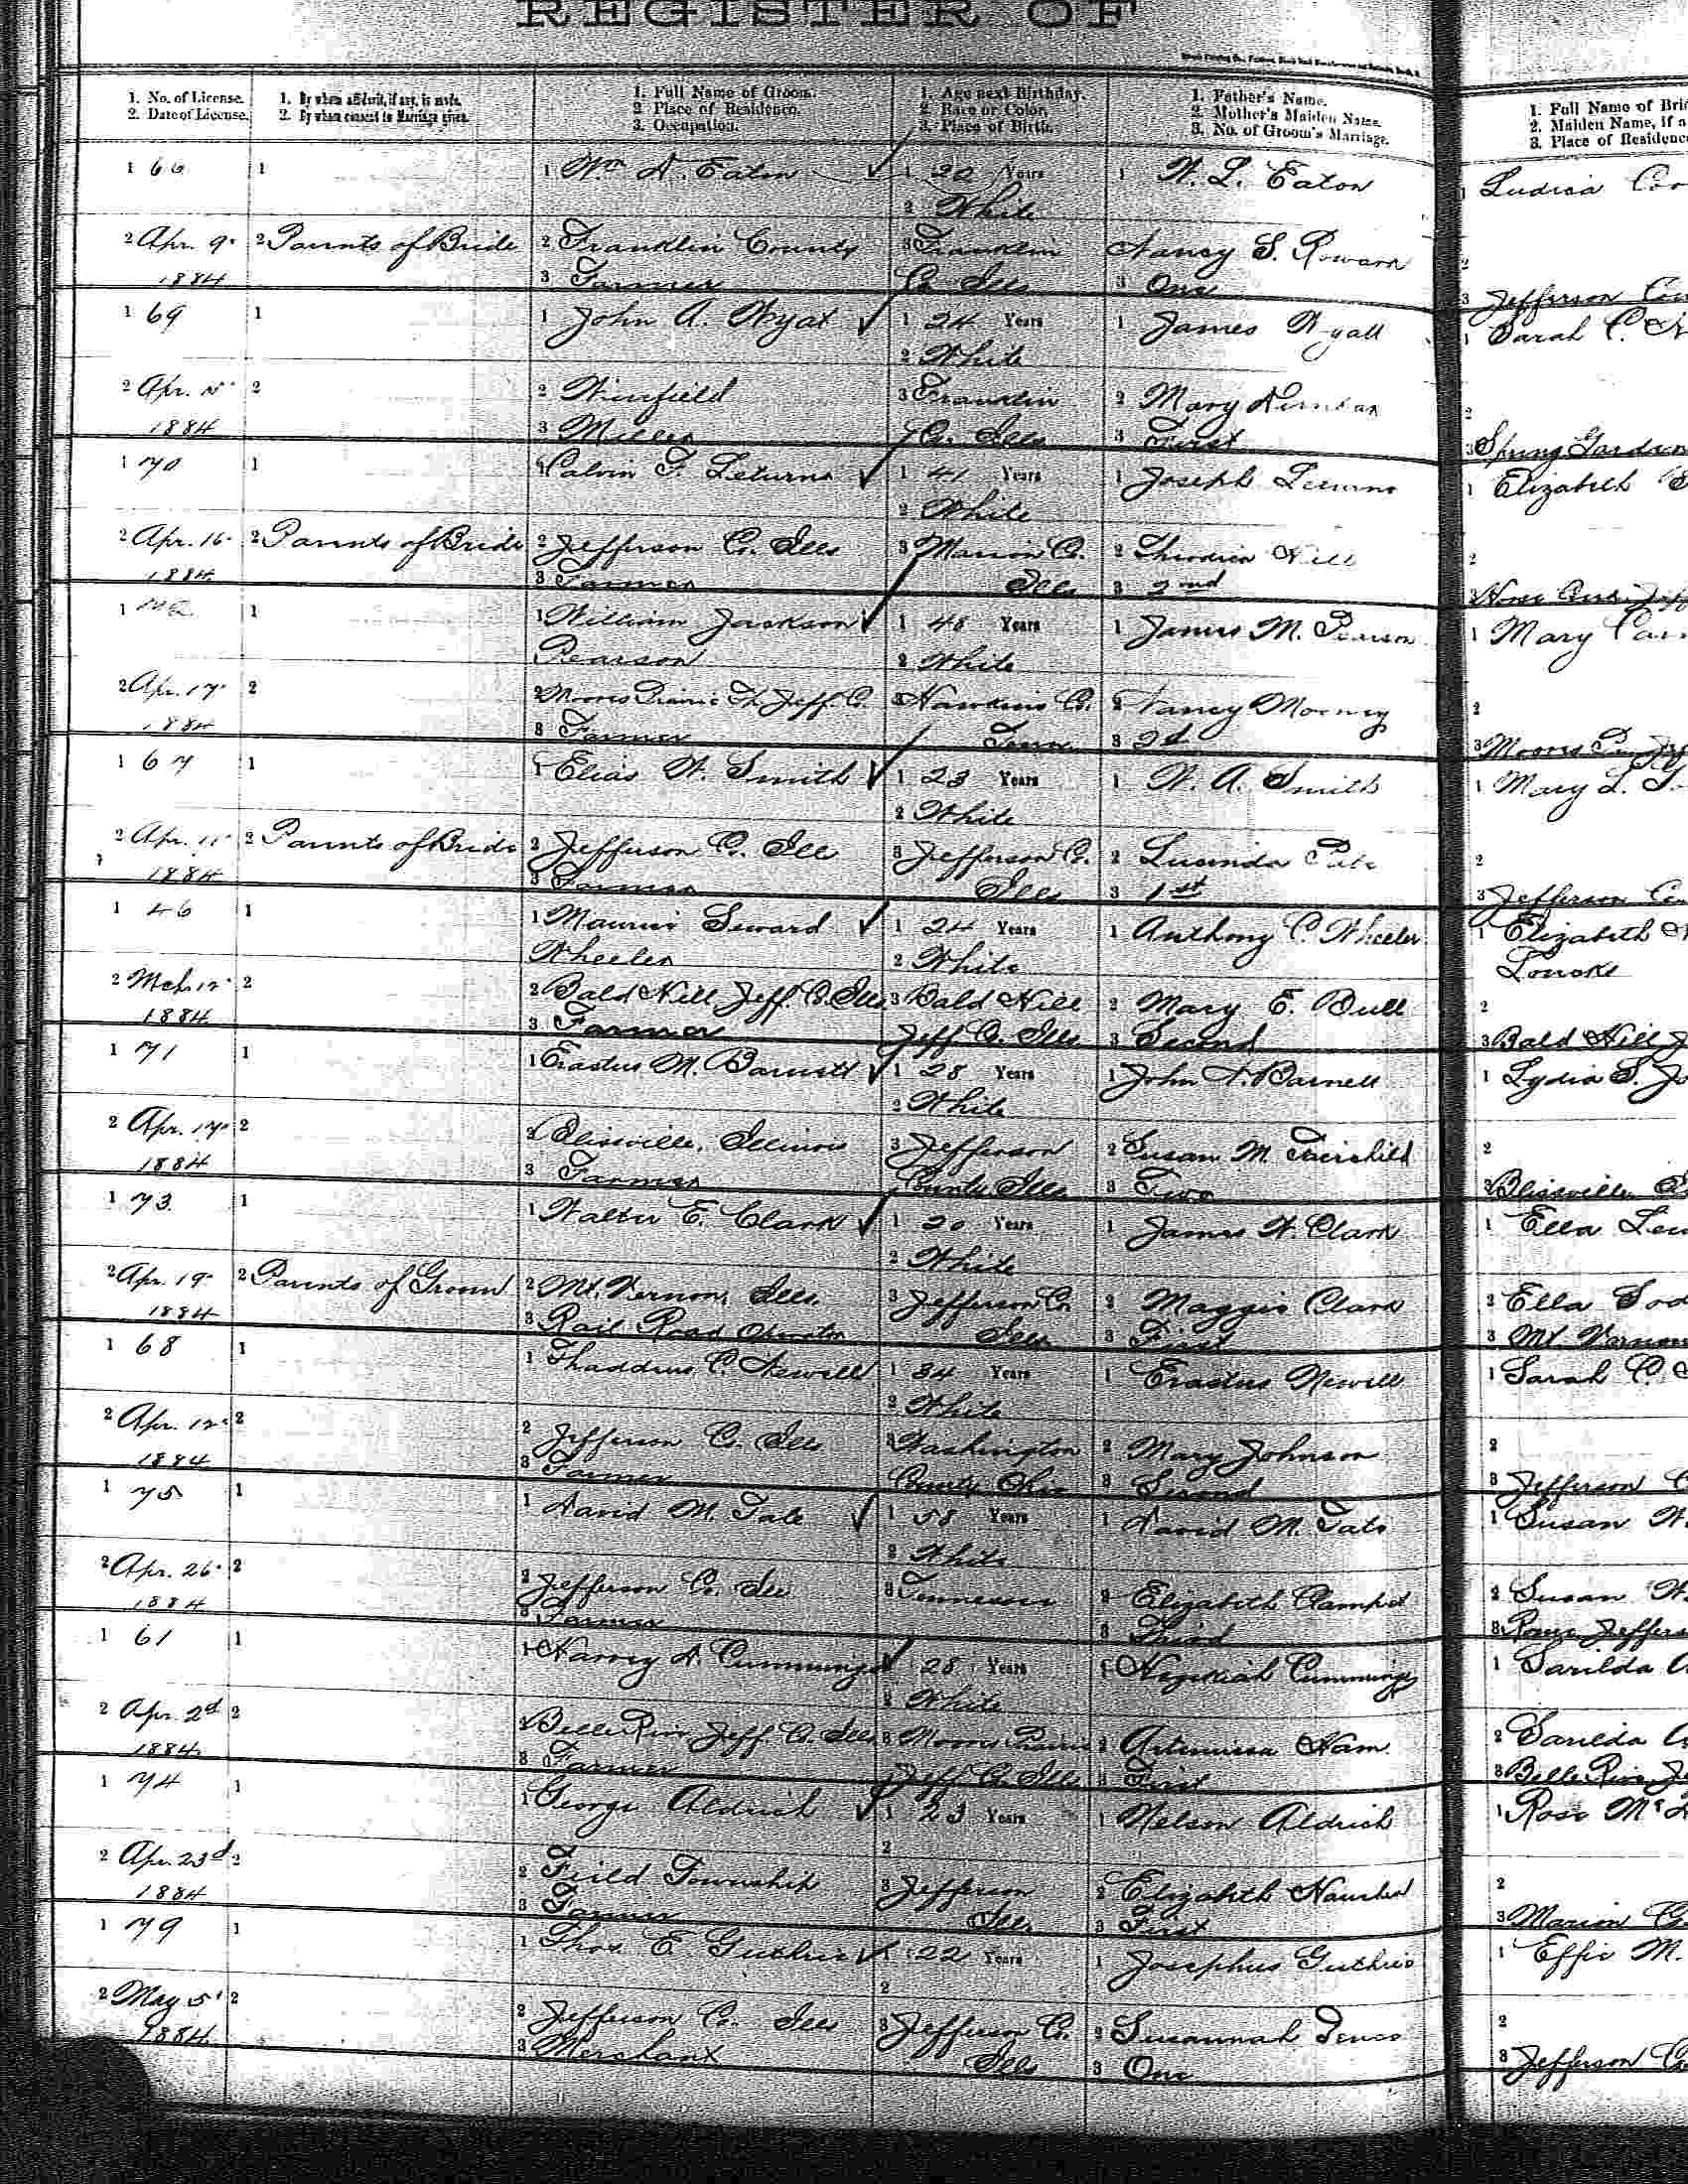 REGISTER OF
1. No. of License.
2. Date of License.
1. By whom affidavit, if any, is made.
2. By whom consent to Marriage given.
1. Full Name of Groom.
2. Place of Residence.
3. Occupation.
1. Age next Birthday.
2. Race or Color.
3. Place of Birth.
1. Father's Name.
2. Mother's Maiden Name.
3. No. of Groom's Marriage.
1. Full Name of Brid
2. Maiden Name, if a
3. Place of Residence
1 66 1 1 Wm A. Eaton 1 20 Years 1 W. L. Eaton 1 Ludicia
2 White
2 Apr. 9 2 Parents of Bride 2 Franklin County 3 Franklin Nancy S. Rowark 2
1884 3 Farmer Co Ills 3 One 3 Jefferson
1 69 1 1 John A. Wyat 1 24 Years 1 James Wyatt 1 Sarah C.
2 White
2 Apr. 2 2 Winfield 3 Franklin 2 Mary 2
1884 3 Miller Co. Ills 3 First 3 Spring Garden
1 70 1 1 Calvin F. Leturno 1 41 Years 1 Joseph Leturno 1 Elizabeth
2 White
2 Apr. 16 2 Parents of Bride 2 Jefferson Co. Ills 3 Marion Co. 2 Hill 2
1884 3 Farmer Ills 3 2nd
1 1 1 William Jackson 1 48 Years 1 James M. Pearson 1 Mary
Pearson 2 White
2 Apr. 17 2 2 Moores Prairie Tp Jeff. C. 3 Hawkins Co. 2 Nancy Mooney 2
1884 3 Farmer Tenn 3 2d 3 Moores
1 67 1 1 Elias W. Smith 1 23 Years 1 W. A. Smith 1 Mary L.
2 White
2 Apr. 11 2 Parents of Bride 2 Jefferson C. Ill 3 Jefferson Co. 2 Lucinda Pate 2
1884 3 Farmer Ills 3 1st 3 Jefferson
1 46 1 1 Maurice Seward 1 24 Years 1 Anthony C. Wheeler 1 Elizabeth
Wheeler 2 White Loucks
2 Mch. 12 2 2 Bald Hill Jeff. C. Ills 3 Bald Hill 2 Mary E. Bull 2
1884 3 Farmer Jeff C. Ills 3 Second 3 Bald Hill
1 71 1 1 Erastus M. Barnett 1 28 Years 1 John Barnett 1 Lydia S.
2 White
2 Apr. 17 2 2 Blissville, Illinois 3 Jefferson 2 Susan M. Fairchild 2
1884 3 Farmer County Ills 3 Two 3 Blissville
1 73 1 1 Walter E. Clark 1 20 Years 1 James W. Clark 1 Ella
2 White
2 Apr. 19 2 Parents of Groom 2 Mt. Vernon, Ills. 3 Jefferson Co 2 Maggie Clark 2 Ella
1884 3 Rail Road Operator Ills 3 First 3 Mt Vernon
1 68 1 1 Thaddeus C. Newell 1 34 Years 1 Erastus Newell 1 Sarah C.
2 White
2 Apr. 12 2 2 Jefferson C. Ills 3 Washington 2 Mary Johnson 2
1884 3 Farmer County Ohio 3 Second 3 Jefferson C
1 75 1 1 David M. Tate 1 58 Years 1 David M. Tate 1 Susan W.
2 White
2 Apr. 26 2 2 Jefferson Co. Ill 3 Tennessee 2 Elizabeth 2 Susan W.
1884 3 Farmer 3 Third 3
1 61 1 1 Harvey A. Cummings 1 28 Years 1 Hezekiah Cummings 1 Sarilda
2 White
2 Apr. 2d 2 2 Belle Rive Jeff. C. Ills. 3 Moores Prairie 2 Artemissa Ham 2 Sarilda
1884 3 Farmer Jeff C. Ills 3 First 3 Belle Rive
1 74 1 1 George Aldrich 1 23 Years 1 Nelson Aldrich 1 Rose
2
2 Apr. 23d 2 2 Feild Township 3 Jefferson 2 Elizabeth 2
1884 3 Farmer Ills 3 First 3 Marion
1 79 1 1 Thos E. Guthrie 1 22 Years 1 Josephus Guthrie 1 Effie M.
2
2 May 5 2 2 Jefferson Co. Ills 3 Jefferson Co. 2 Susannah 2
1884 3 Merchant Ills 3 One 3 Jefferson